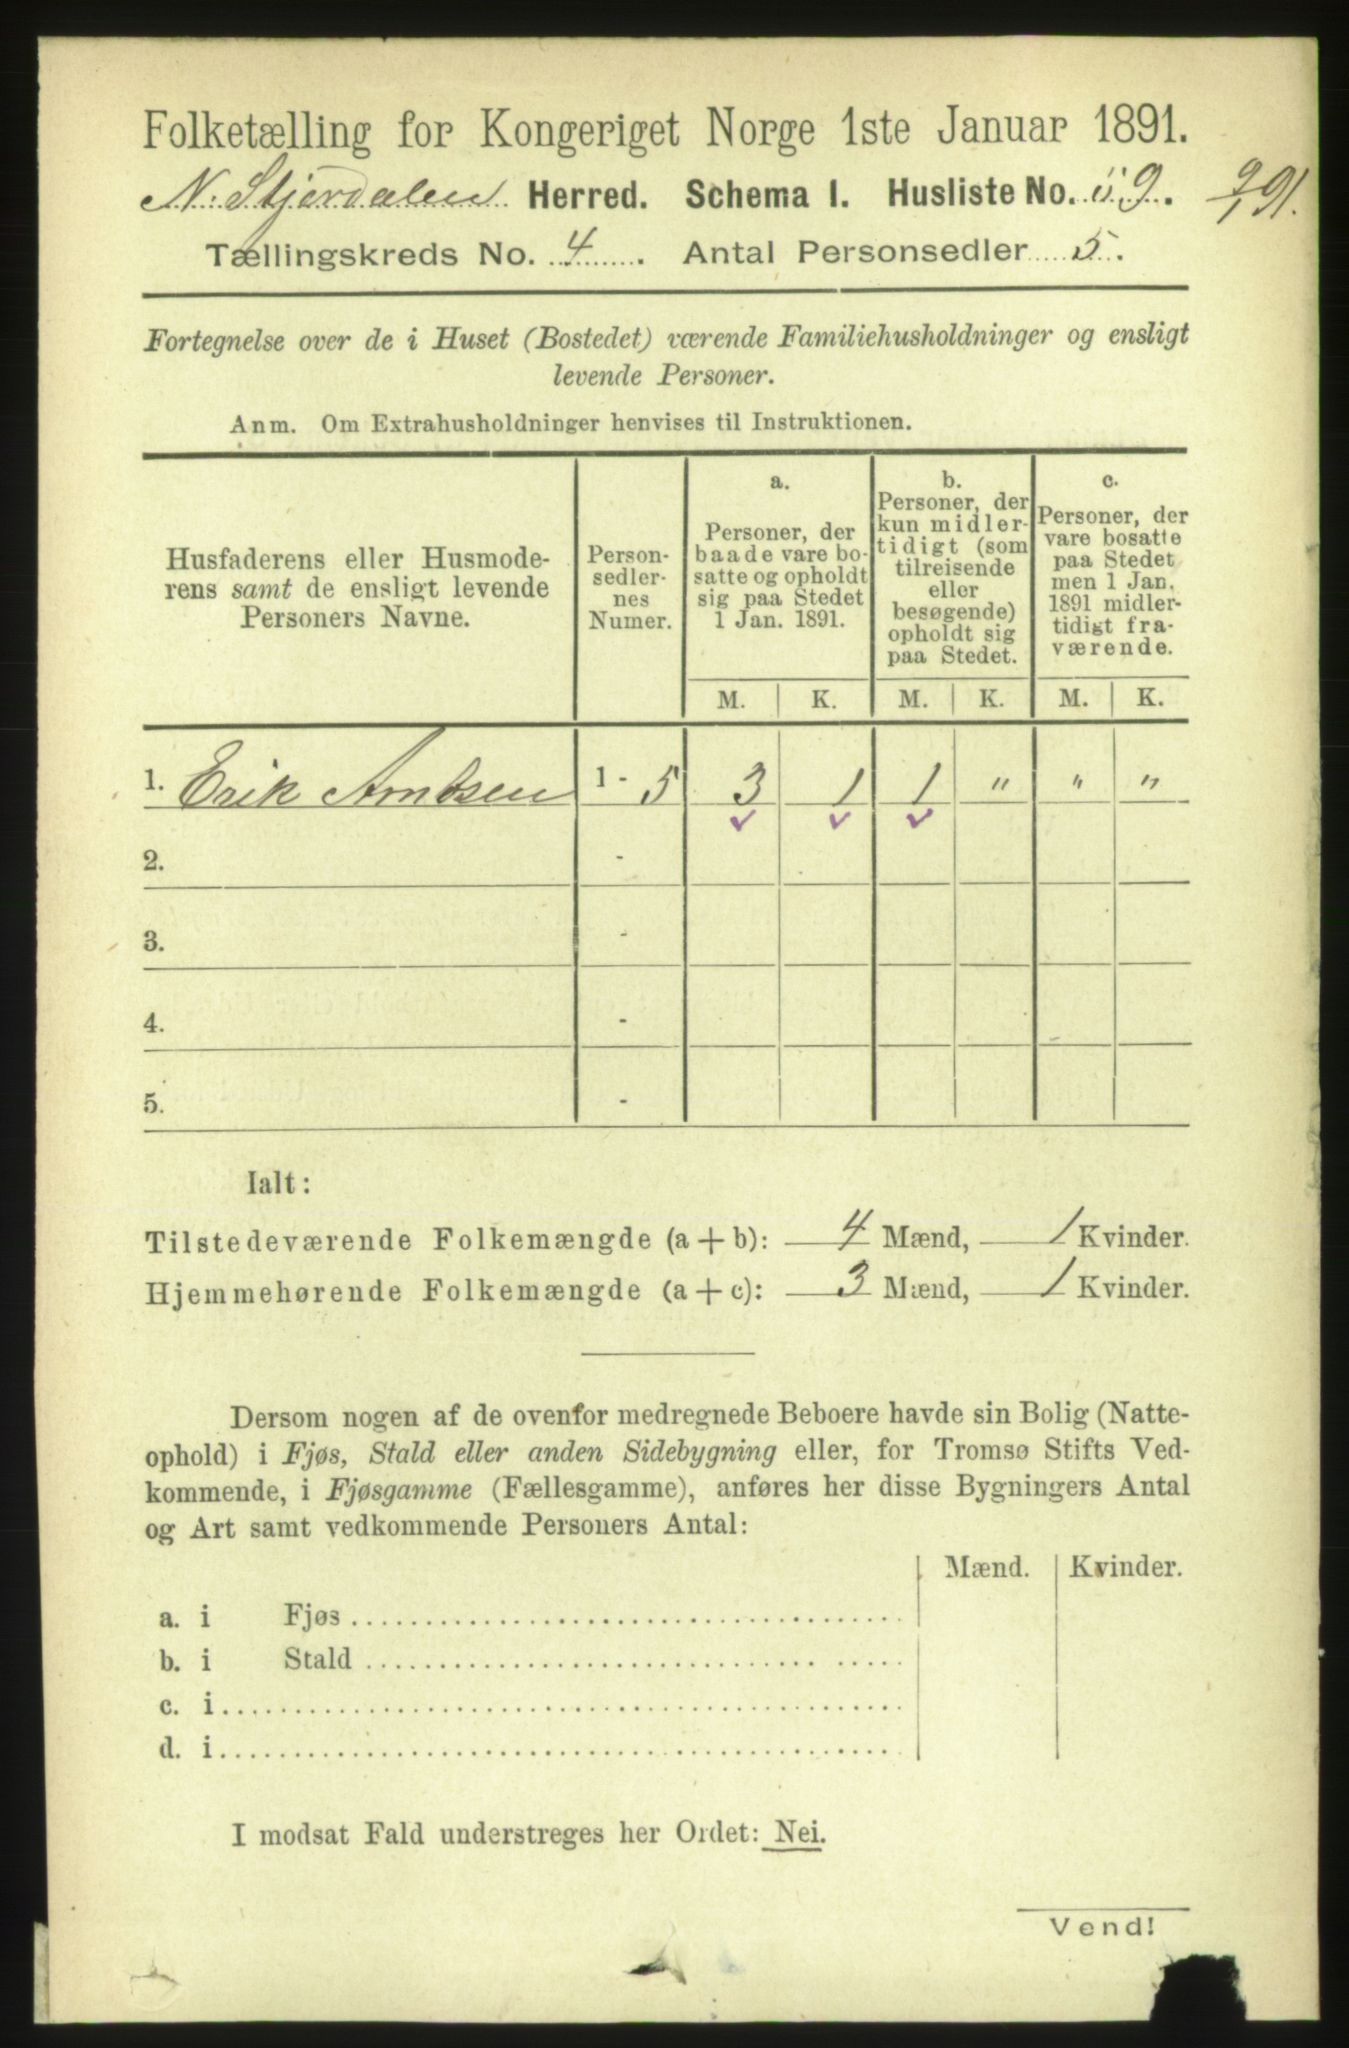 Folketælling for Kongeriget Norge 1ste Januar 1891.
N. Stjørdalen Herred. Schema I. Husliste No. 59. 9/1 91.
Tællingskreds No. 4. Antal Personsedler 5.
Fortegnelse over de i Huset (Bostedet) værende Familiehusholdninger og ensligt
levende Personer.
Anm. Om Extrahusholdninger henvises til Instruktionen.
Husfaderens eller Husmode-
rens samt de ensligt levende
Personers Navne.
Person-
sedler-
nes
Numer.
a.
Personer, der
baade vare bo-
satte og opholdt
sig paa Stedet
1 Jan. 1891.
b.
Personer, der
kun midler-
tidigt (som
tilreisende
eller
besøgende)
opholdt sig
paa Stedet.
c.
Personer, der
vare bosatte
paa Stedet
men 1 Jan.
1891 midler-
tidigt fra-
værende.
M. K. M. K. M. K.
1. Erik Arntsen 1 - 5 3 1 1 " " "
2. -
3. -
4. -
5. -
Ialt:
Tilstedeværende Folkemængde (a + b): 4 Mænd, 1 Kvinder.
Hjemmehørende Folkemængde (a + c): 3 Mænd, 1 Kvinder.
Dersom nogen af de ovenfor medregnede Beboere havde sin Bolig (Natte-
ophold) i Fjøs, Stald eller anden Sidebygning eller, for Tromsø Stifts Ved-
kommende, i Fjøsgamme (Fællesgamme), anføres her disse Bygningers Antal
og Art samt vedkommende Personers Antal:
Mænd. Kvinder.
a. i Fjøs
b. i Stald
c. i
d. i
I modsat Fald understreges her Ordet: Nei.
Vend!